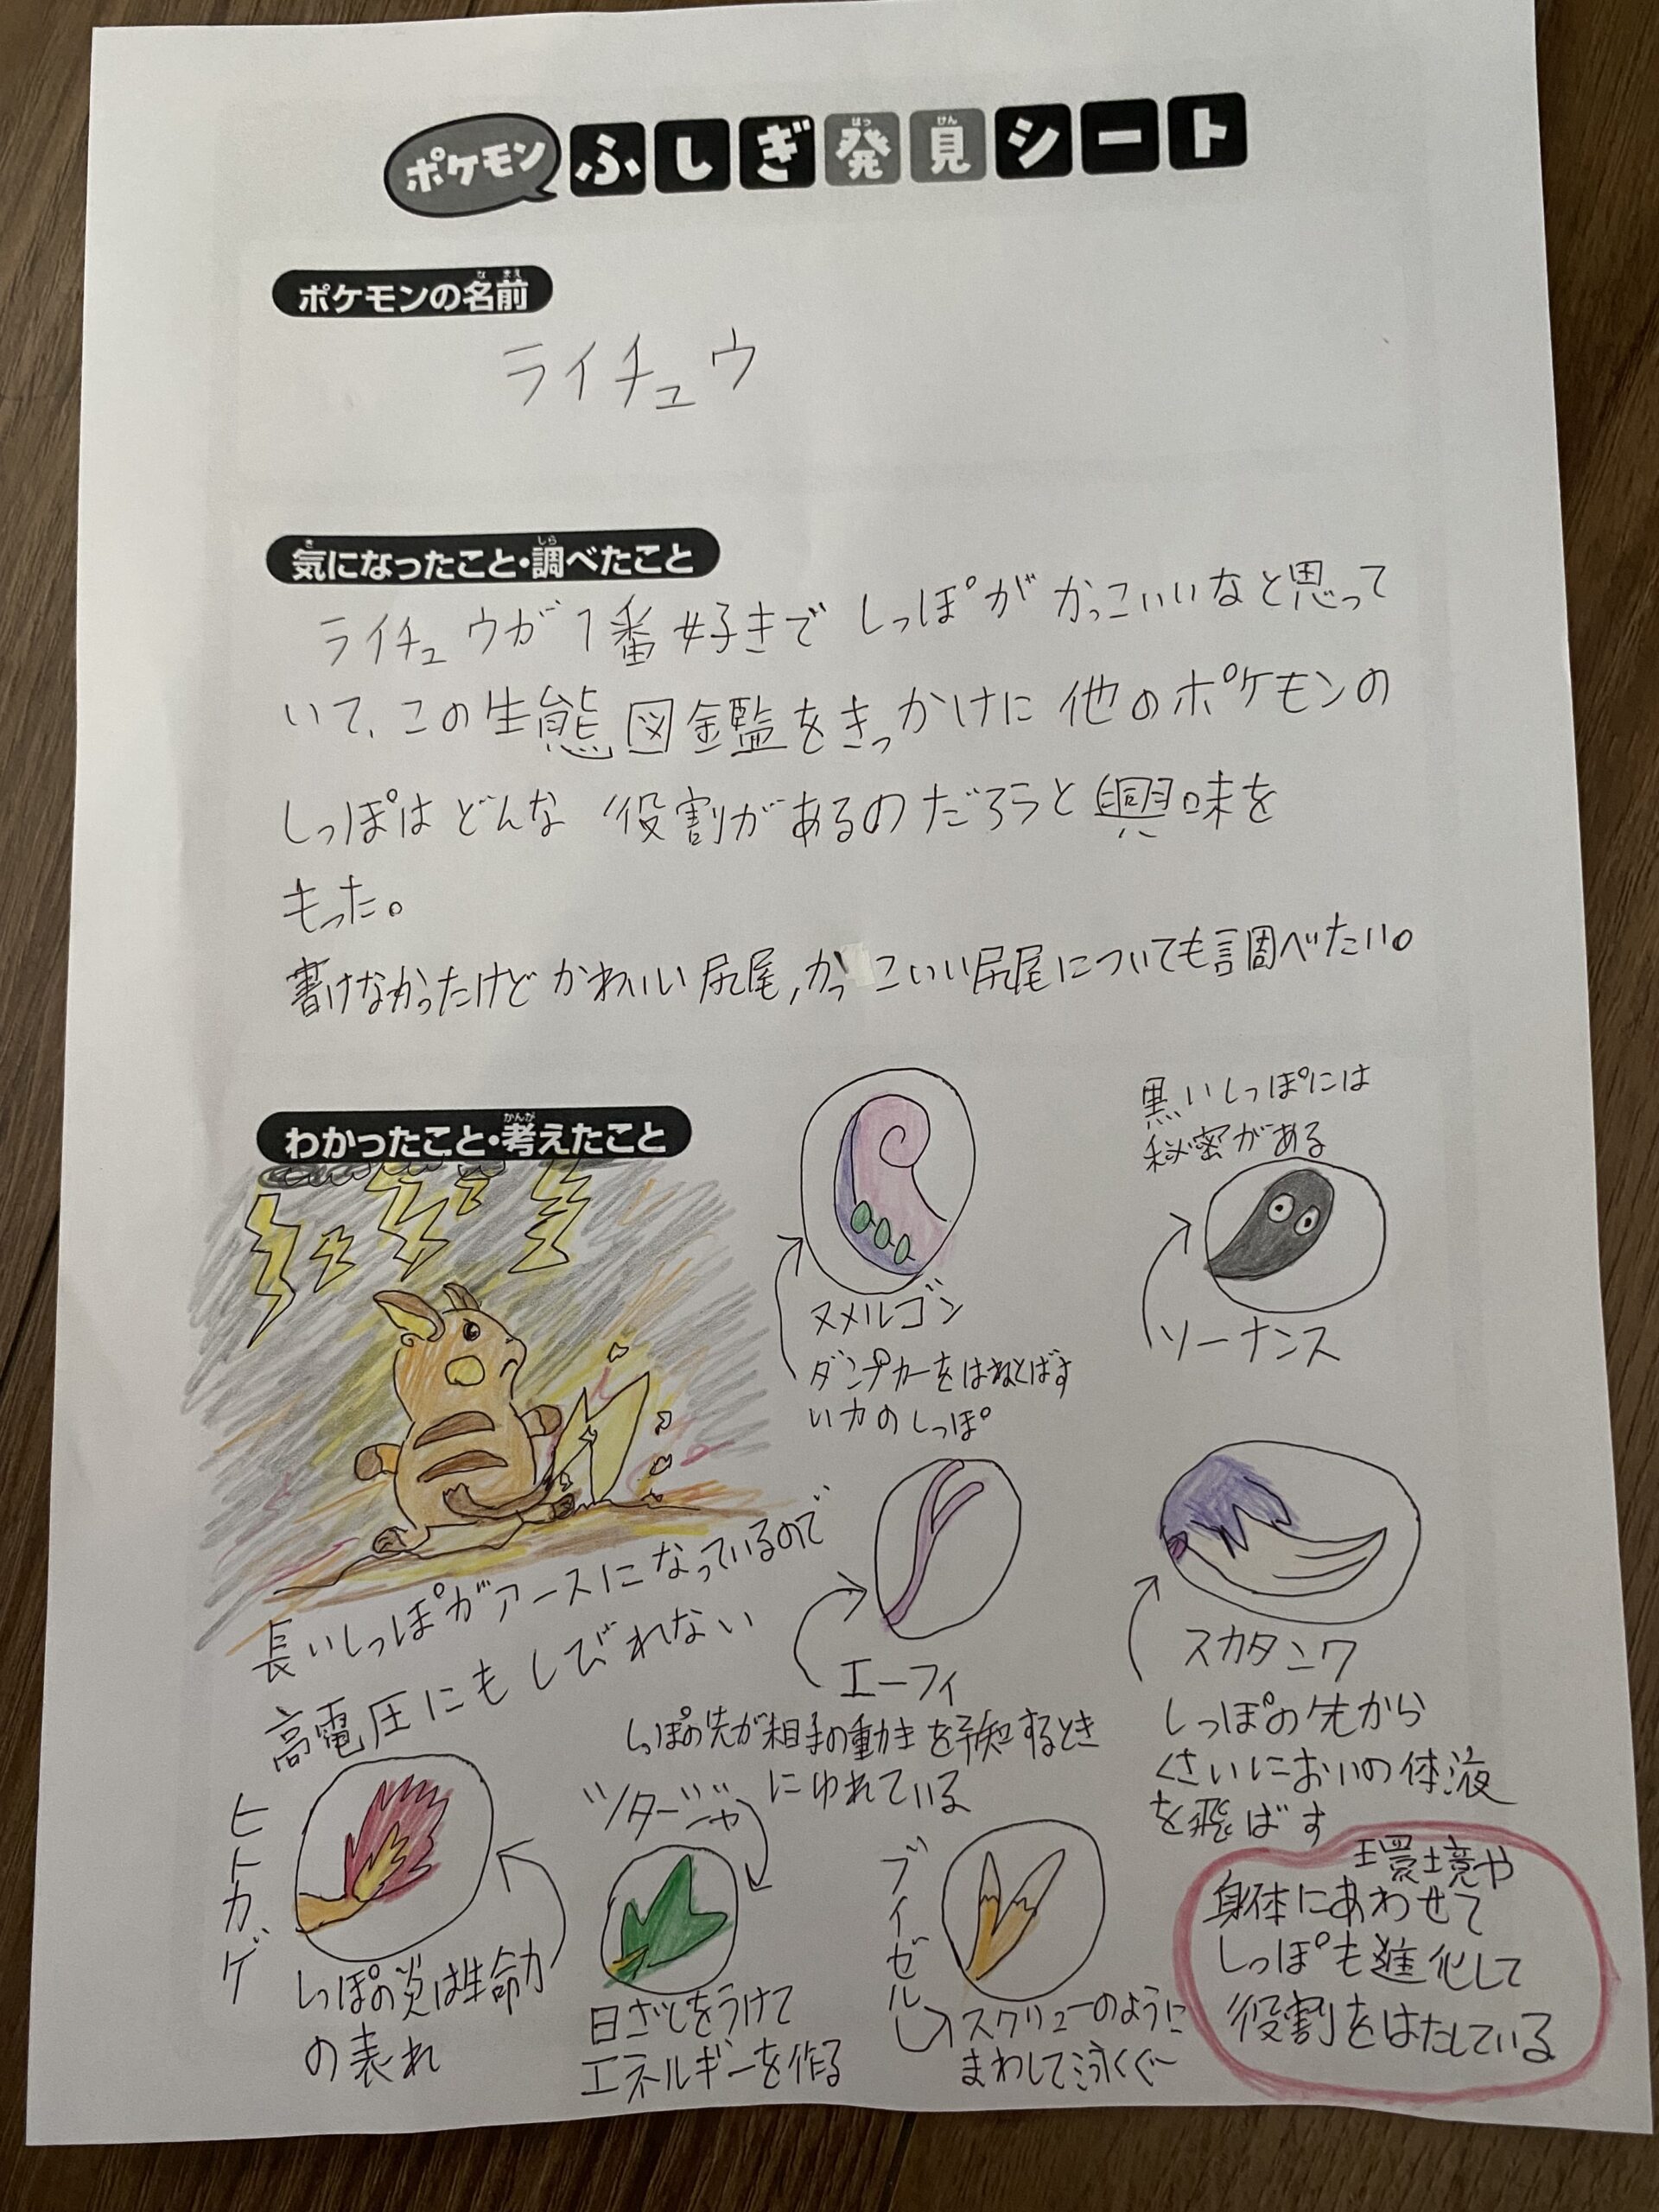 ポケモン ふしぎ発見シート
ポケモンの名前
ライチュウ
気になったこと・調べたこと
ライチュウが1番好きで しっぽが かっこいいなと思って
いて、この生態図鑑をきっかけに 他のポケモンの
しっぽは どんな 役割があるのだろうと 興味を
もった。
書けなかったけど かわいい尻尾、かっこいい尻尾についても調べたい。
わかったこと・考えたこと
長いしっぽがアースになっているので
高電圧にもしびれない
ヌメルゴン
ダンプカーをはねとばす
い力のしっぽ
黒いしっぽには
秘密がある
ソーナンス
エーフィ
しっぽの先が相手の動きを予知するとき
にゆれている
スカタンク
しっぽの先から
くさいにおいの体液
を飛ばす
ヒトカゲ
しっぽの炎は生命力
の表れ
ツタージャ
日ざしをうけて
エネルギーを作る
ブイゼル
スクリューのように
まわして泳ぐ
環境や
身体にあわせて
しっぽも進化して
役割をはたしている